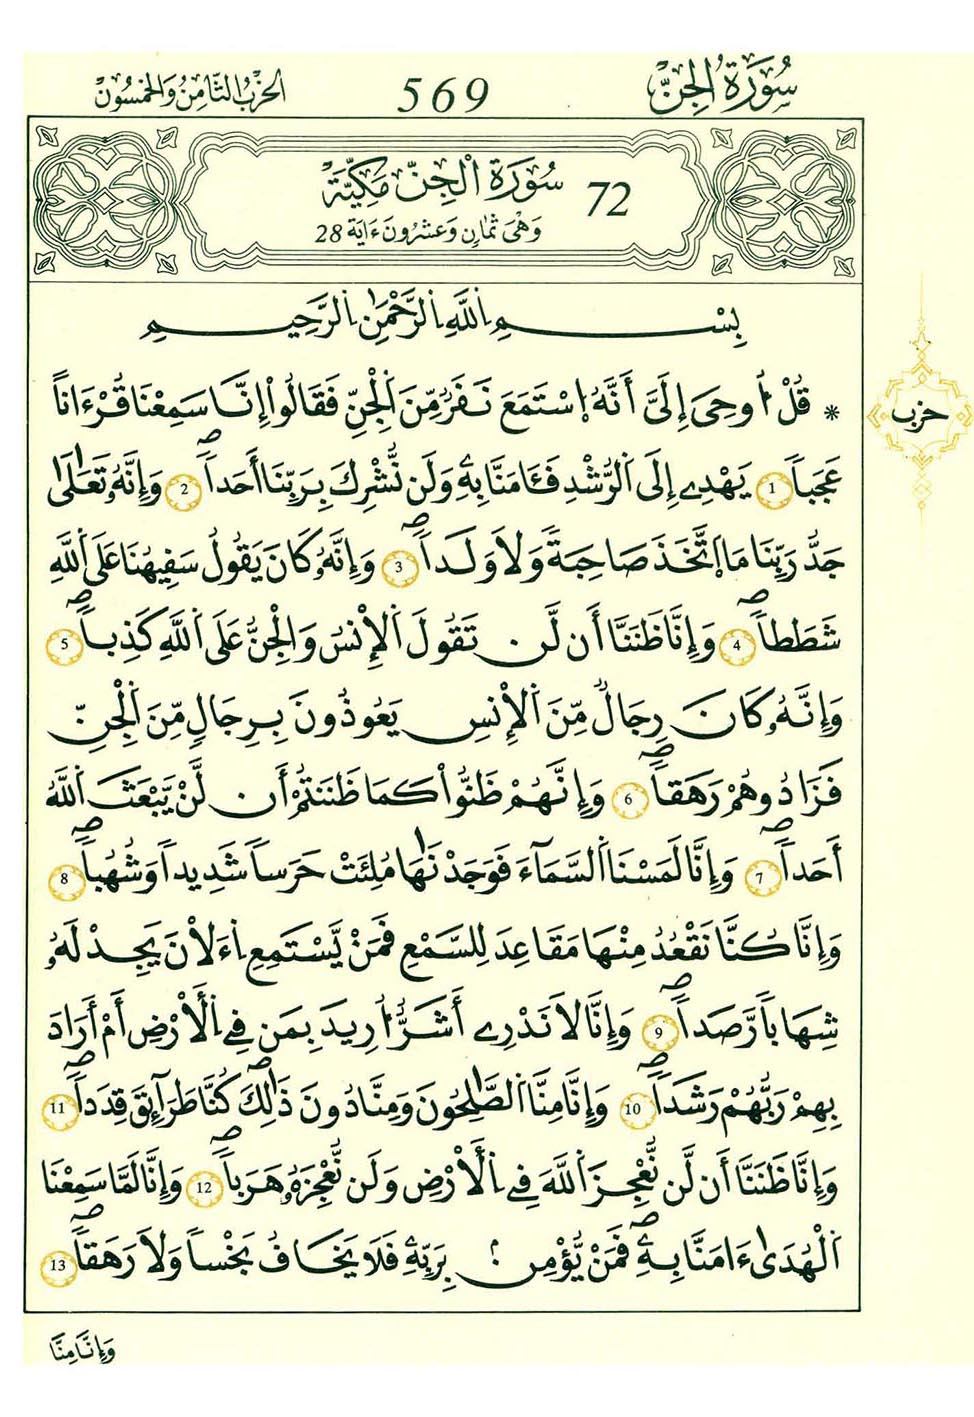 سُورَةُ الجِنِّ
569
الحِزْبُ الثَّامِنُ وَالخَمْسُونْ
72 سُورَةُ الْجِنِّ مَكِّيَّةٌ
وَهْيَ ثَمَانٍ وَعِشْرُونَ ءَايَة 28
بِسْمِ اِ۬للَّهِ اِ۬لرَّحْمَٰنِ اِ۬لرَّحِيمِ
* قُلُ ا۟وحِيَ إِلَيَّ أَنَّهُ اُ۪سْتَمَعَ نَفَرٞ مِّنَ اَ۬لْجِنِّ فَقَالُوٓاْ إِنَّا سَمِعْنَا قُرْءَاناً
حزب
عَجَباٗ 1 يَهْدِے إِلَى اَ۬لرُّشْدِ فَـَٔامَنَّا بِهِۦ وَلَن نُّشْرِكَ بِرَبِّنَا أَحَداٗۖ 2 وَإِنَّهُۥ تَعَٰلَىٰ
جَدُّ رَبِّنَا مَا اَ۪تَّخَذَ صَاحِبَةٗ وَلَا وَلَداٗۖ 3 وَإِنَّهُۥ كَانَ يَقُولُ سَفِيهُنَا عَلَى اَ۬للَّهِ
شَطَطاٗۖ 4 وَإِنَّا ظَنَنَّا أَن لَّن تَقُولَ اَ۬لْإِنسُ وَالْجِنُّ عَلَى اَ۬للَّهِ كَذِباٗۖ 5
وَإِنَّهُۥ كَانَ رِجَالٞ مِّنَ اَ۬لْإِنسِ يَعُوذُونَ بِرِجَالٖ مِّنَ اَ۬لْجِنِّ
فَزَادُوهُمْ رَهَقاٗۖ 6 وَإِنَّهُمْ ظَنُّواْ كَمَا ظَنَنتُمْ أَن لَّنْ يَّبْعَثَ اَ۬للَّهُ
أَحَداٗۖ 7 وَإِنَّا لَمَسْنَا اَ۬لسَّمَآءَ فَوَجَدْنَٰهَا مُلِئَتْ حَرَساٗ شَدِيداٗ وَشُهُباٗۖ 8
وَإِنَّا كُنَّا نَقْعُدُ مِنْهَا مَقَٰعِدَ لِلسَّمْعِ فَمَنْ يَّسْتَمِعِ اِ۬ءَلَانَ يَجِدْ لَهُۥ
شِهَاباٗ رَّصَداٗۖ 9 وَإِنَّا لَا نَدْرِے أَشَرٌّ ا۟رِيدَ بِمَن فِے اِ۬لْأَرْضِ أَمْ أَرَادَ
بِهِمْ رَبُّهُمْ رَشَداٗۖ 10 وَإِنَّا مِنَّا اَ۬لصَّٰلِحُونَ وَمِنَّا دُونَ ذَٰلِكَۖ كُنَّا طَرَآئِقَ قِدَداٗۖ 11
وَإِنَّا ظَنَنَّا أَن لَّن نُّعْجِزَ اَ۬للَّهَ فِے اِ۬لْأَرْضِ وَلَن نُّعْجِزَهُۥ هَرَباٗۖ 12 وَإِنَّا لَمَّا سَمِعْنَا
اَ۬لْهُدَىٰ ءَامَنَّا بِهِۦۖ فَمَنْ يُّؤْمِنۢ بِرَبِّهِۦ فَلَا يَخَافُ بَخْساٗ وَلَا رَهَقاٗۖ 13
وَإِنَّا مِنَّا